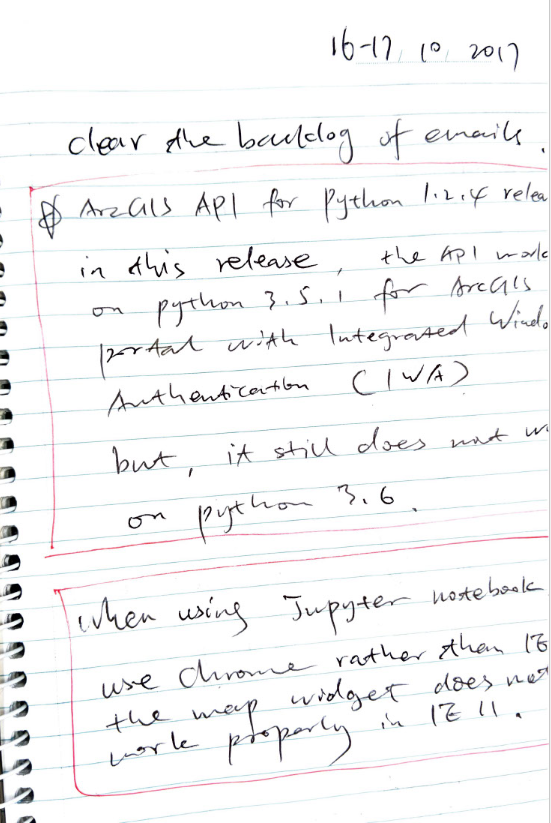 16-17, 10, 2017
clear the backlog of emails.
ArcGIS API for Python 1.2.4 relea
in this release, the API work
on python 3.5.1 for ArcGIS
portal with Integrated Windo
Authentication (IWA)
but, it still does not w
on python 3.6.
when using Jupyter notebook
use Chrome rather than IE
the map widget does not
work properly in IE 11.